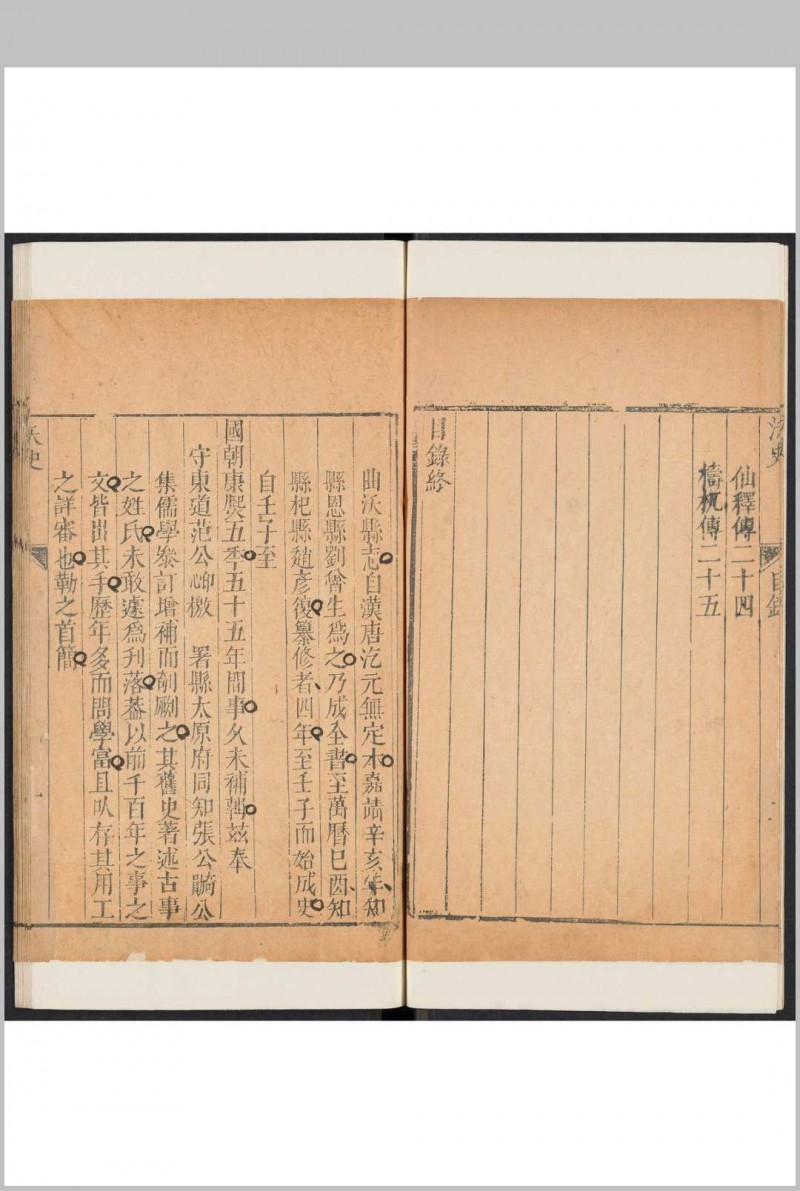 沃史
目錄
仙釋傳二十四
檮杌傳二十五
目錄終
曲沃縣志自漢唐汔元無定本嘉靖辛亥年知
縣恩縣劉魯生爲之乃成全書至萬曆己酉知
縣杞縣趙彥復纂修者四年至壬子而始成史
自壬子至
國朝康熙五季五十五年間事久未補輯茲奉
守東道范公印檄 署縣太原府同知張公齡公
集儒學叅訂增補而剞劂之其舊史著述古事
之姓氏未敢遽爲刋落葢以前千百年之事之
文皆出其手歷年多而問學富且以存其用工
之詳審也勒之首簡
沃史